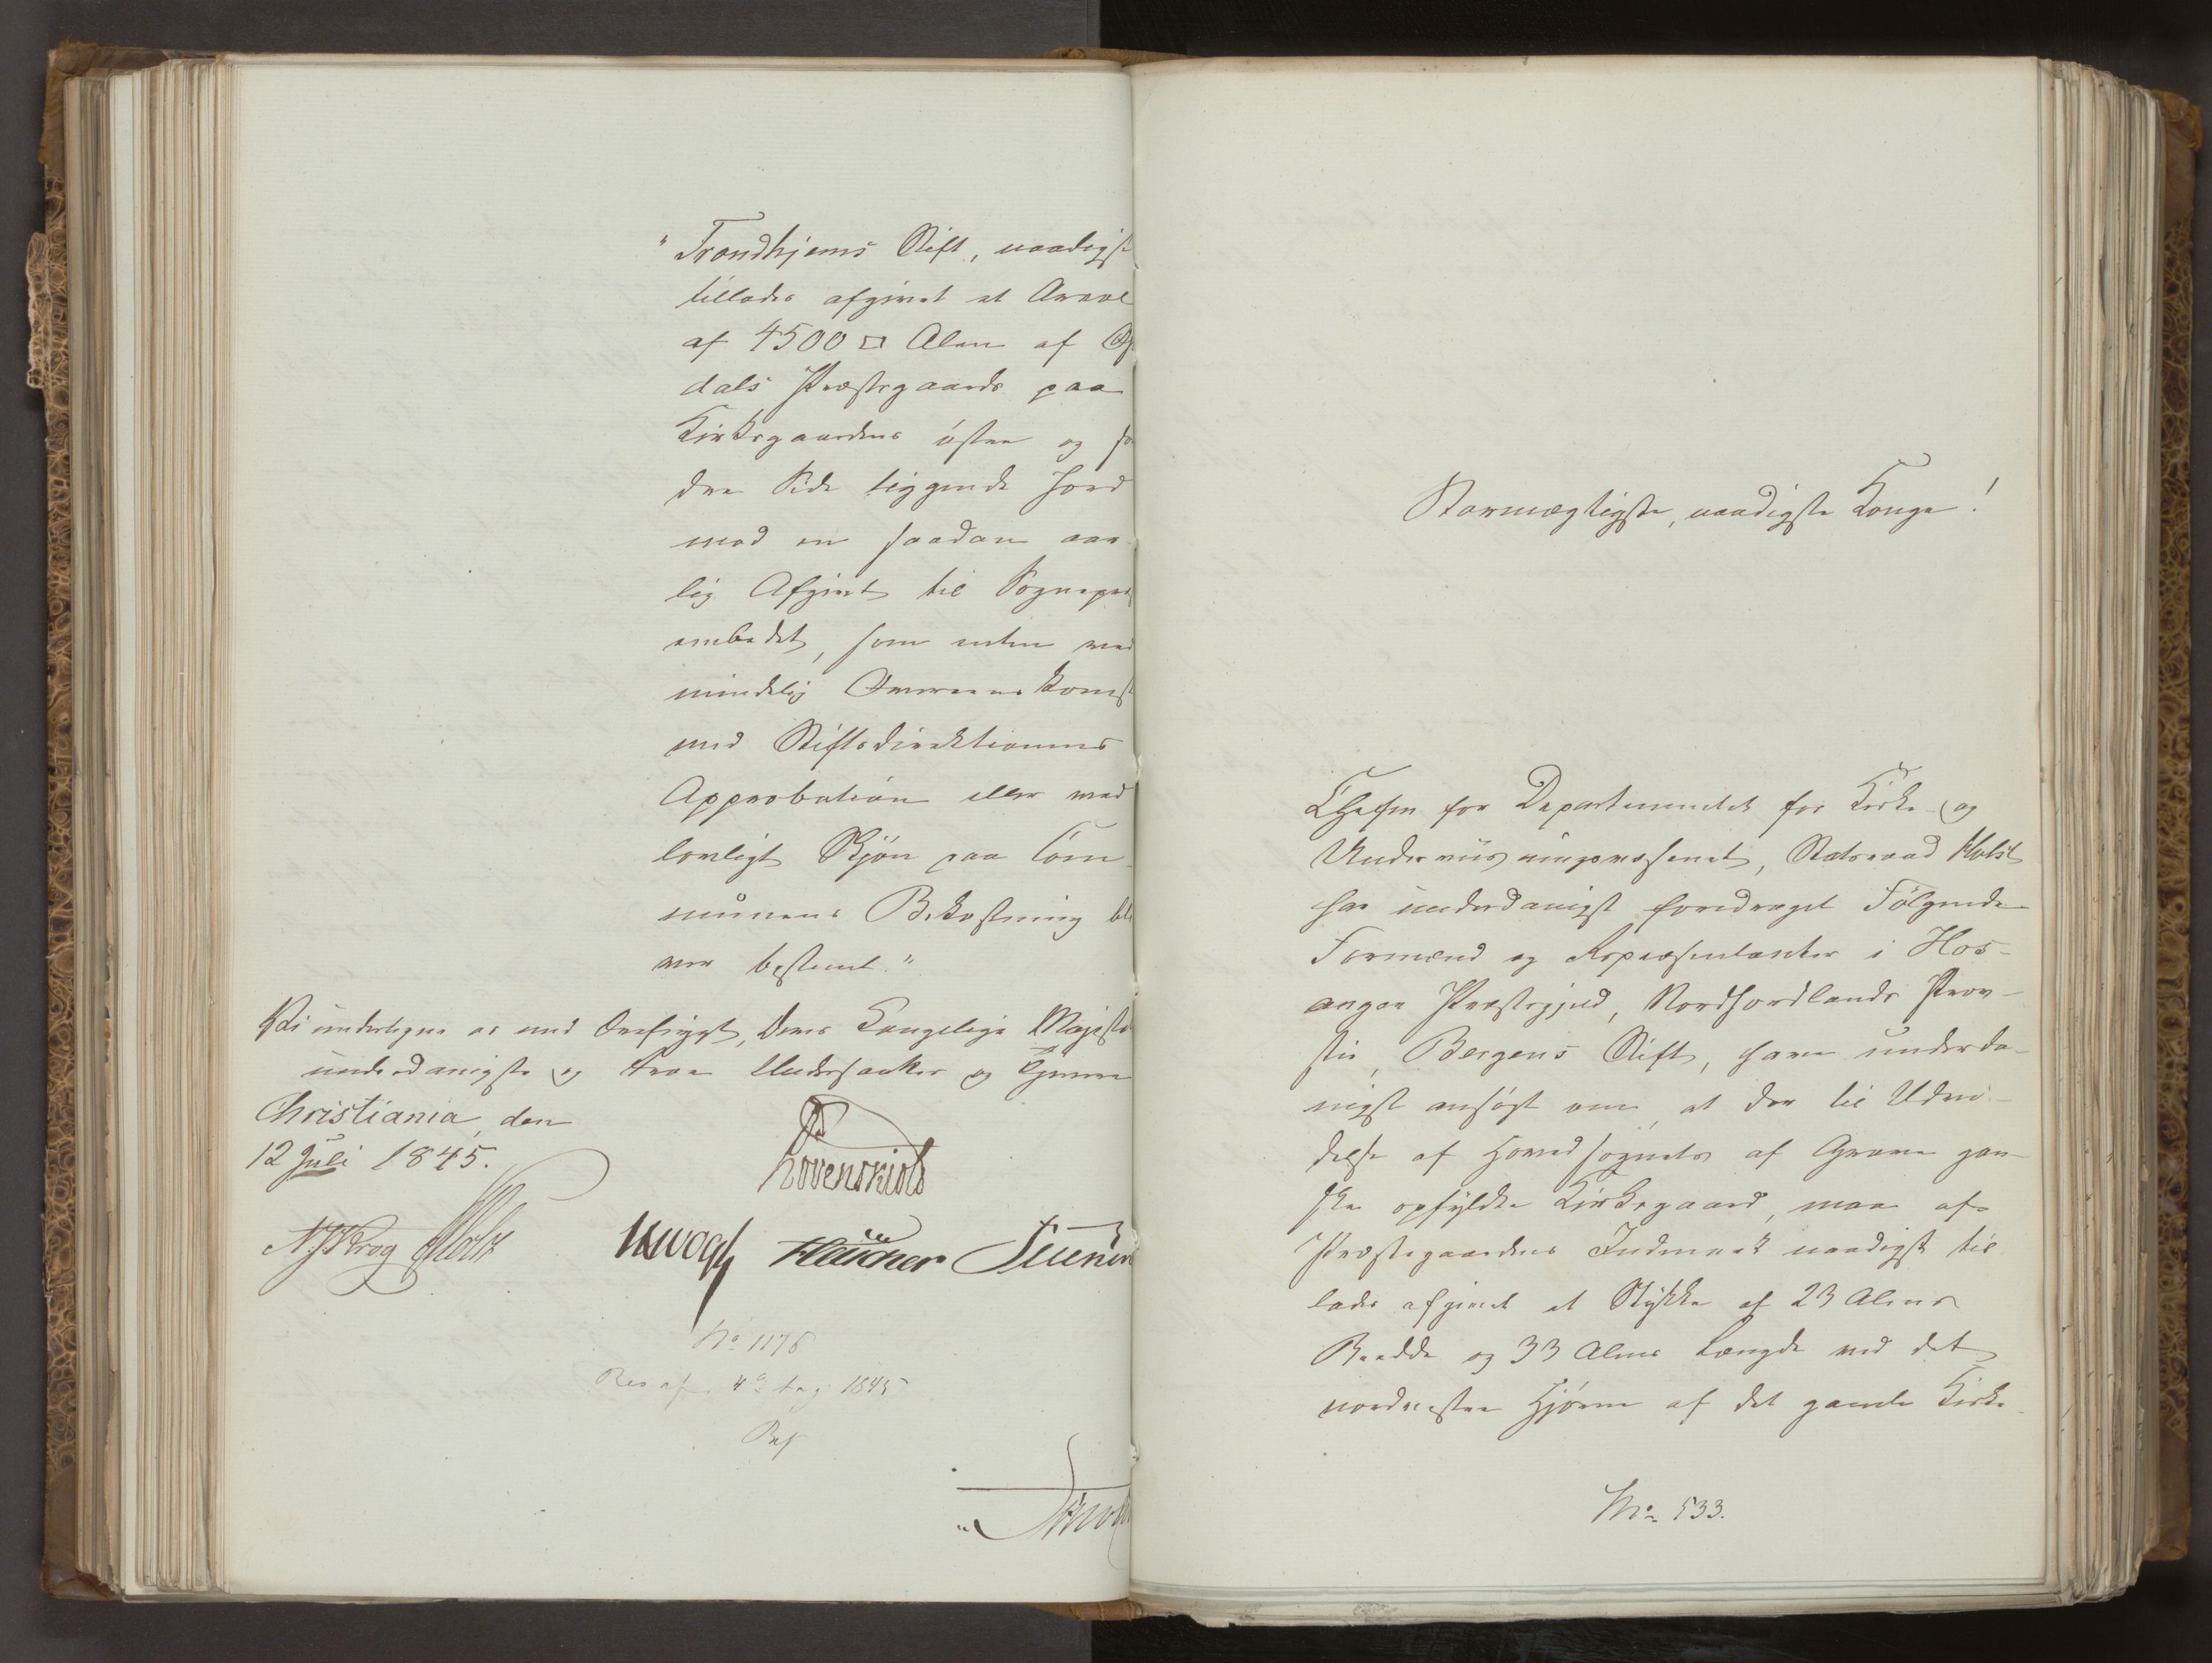 "Trondhjems Stift, naadigst
tillades afgivet et Areal
af 4500 □ Alen af Op
dals Præstegaards paa
Kirkegaardens østre og sø
dre Side liggende Jord
mod en saadan aar-
lig Afgivt til Sognepræ
embedet, som enten ved
mindelig Overeenskomst
med Stiftsdirektionens
Approbation eller ved
lovligt Skjøn paa Com-
munens Bekostning bli
ver bestemt."
Vi undertegne os med Ærefrygt, Deres Kongelige Majestæ
underdanigste og troe Undersaatter og Tjenere
Christiania, den
12 Juli 1845.
Løvenskiold
N J Krog Holst
JHVogt Fleischer
No 1176
4de Aug 1845
Stormægtigste, naadigste Konge!
Chefen for Departementet for Kirke- og
Underviisningsvæsenet, Statsraad Holst
har underdanigst foredraget Følgende
Formænd og Repræsentanter i Hos-
anger Præstegjeld, Nordhordlands Prov-
stie, Bergens Stift, have underda-
nigst ansøgt om, at der til Udvi-
delse af Hovedsognets af Grave gan-
ske opfyldte Kirkegaard, maa af
Præstegaardens Indmark naadigst til
lades afgivet et Stykke af 23 Alens
Bredde og 33 Alens Længde ved det
nordvestre Hjørne af det gamle Kirke-
No 533.